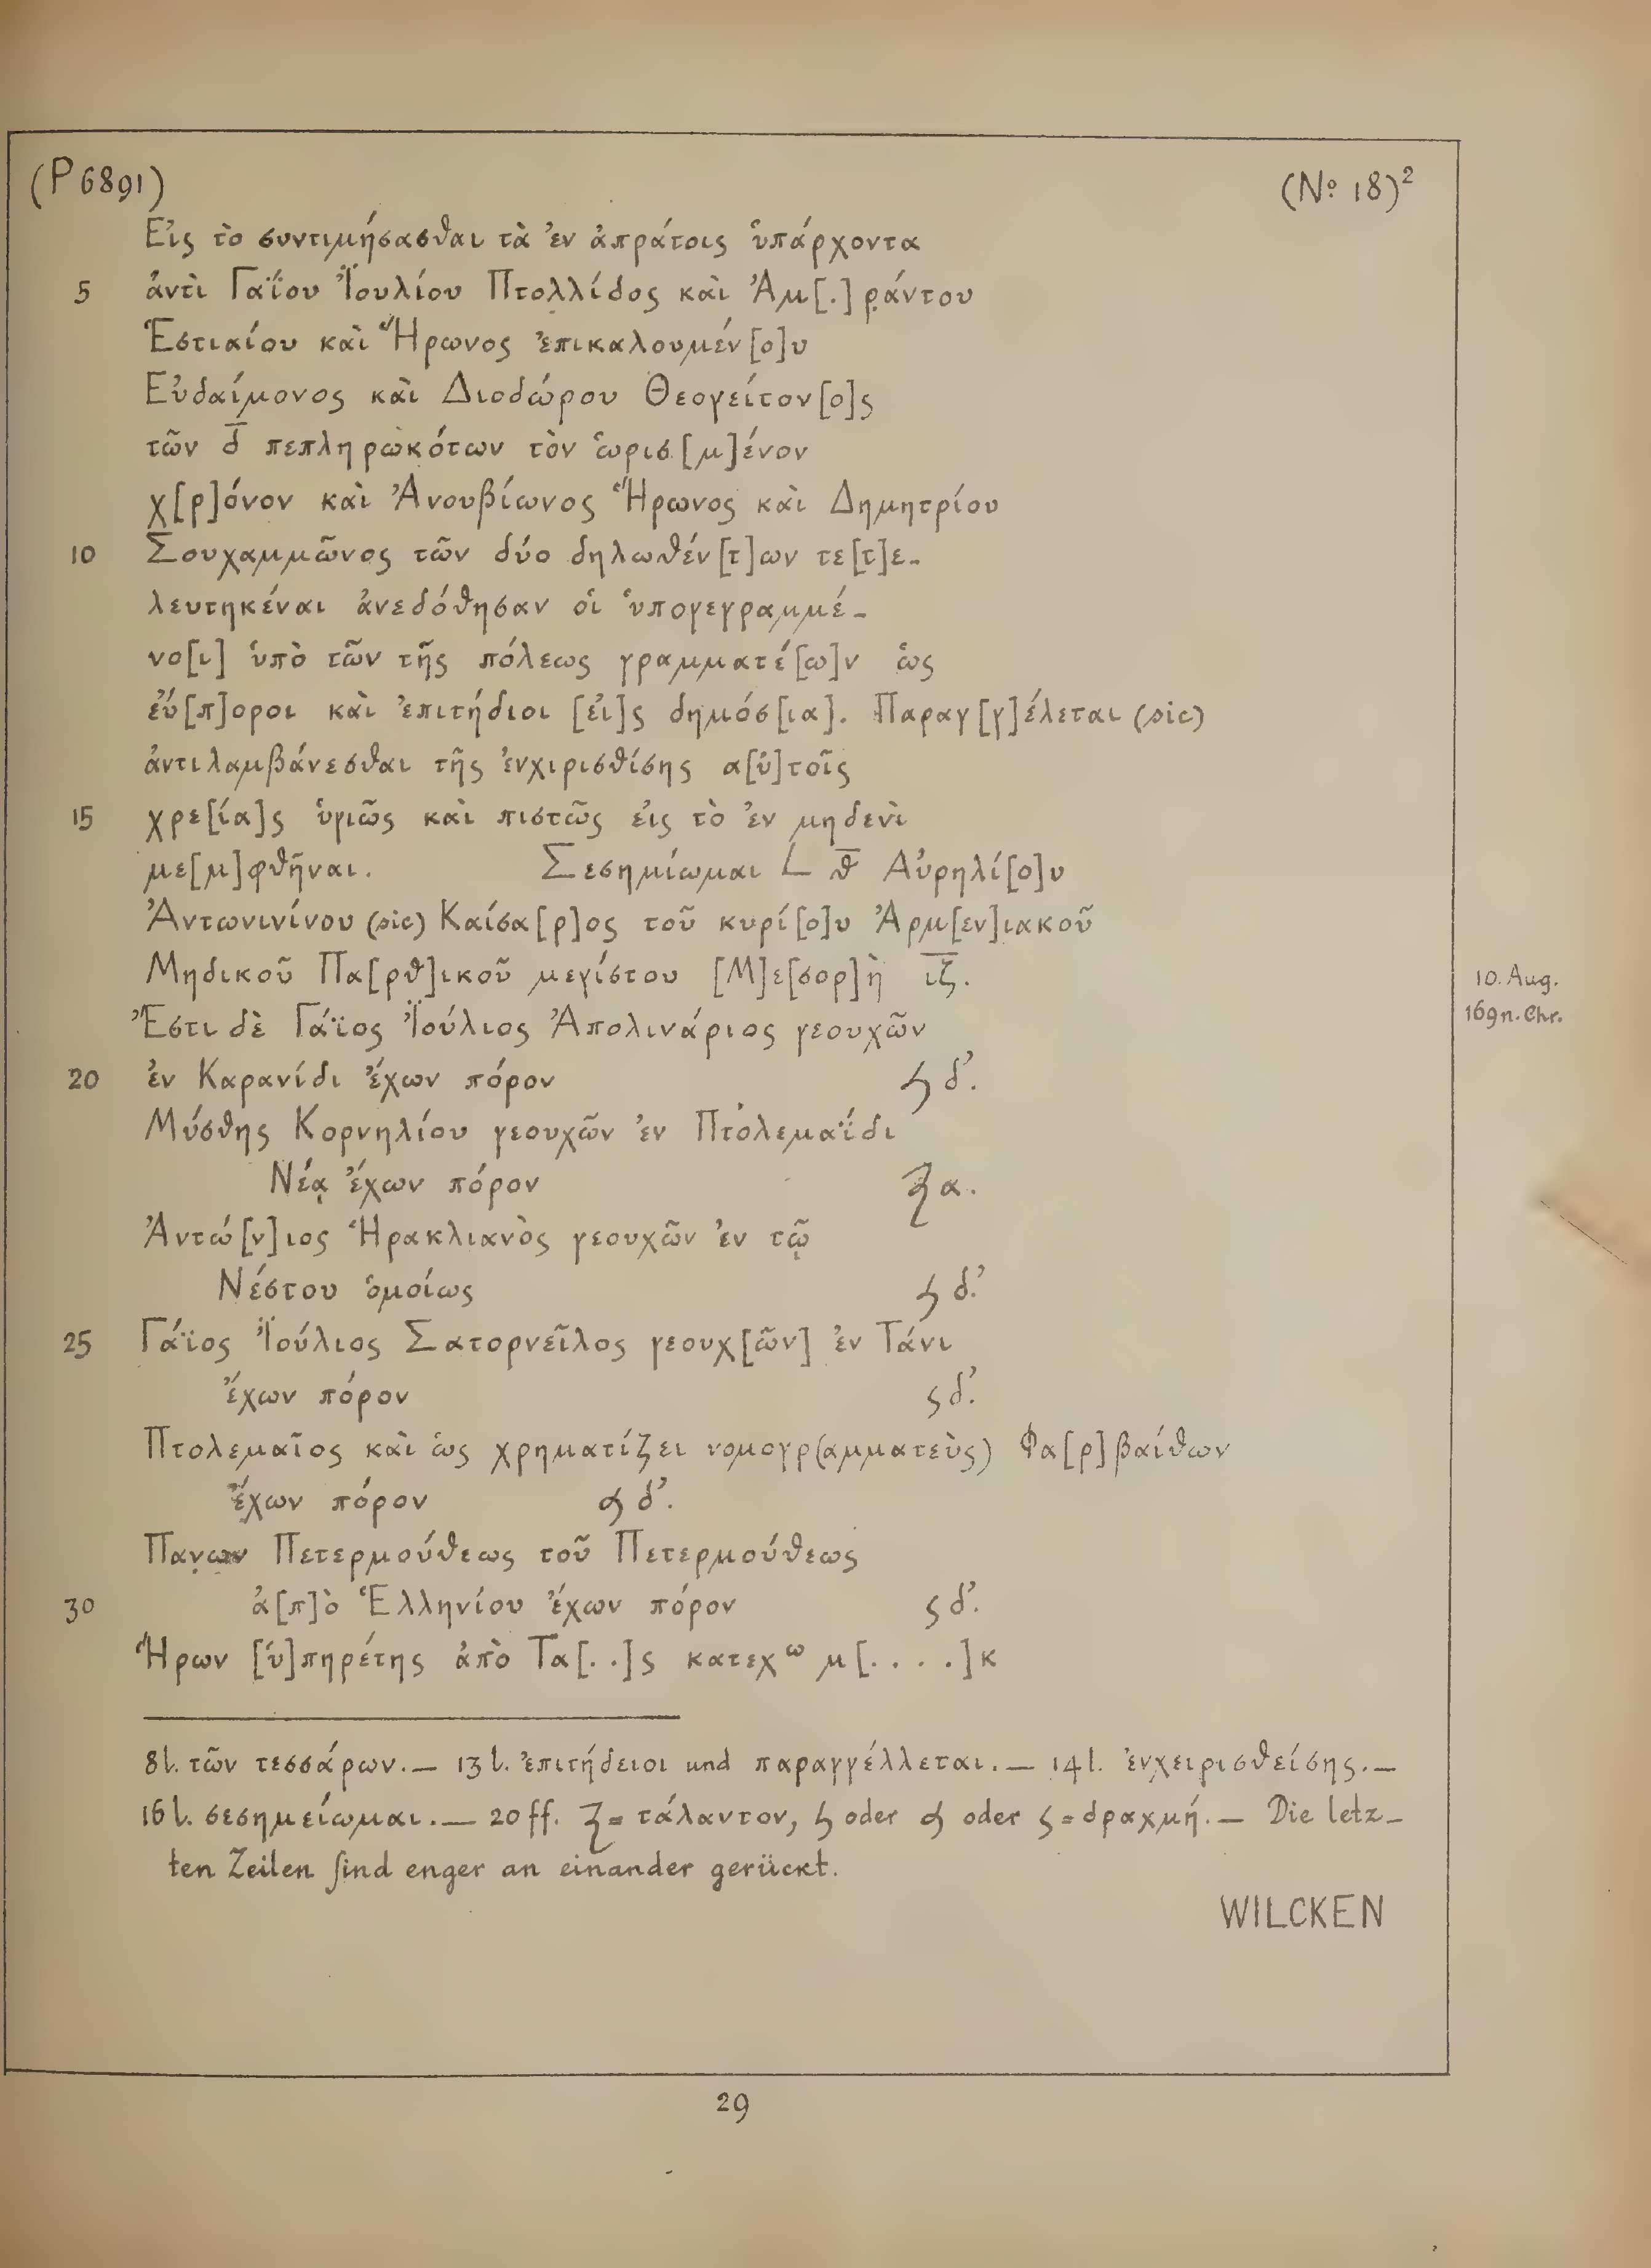 (P 6891) (Nº 18)²
Εἰς τὸ συντιμήσασθαι τὰ ἐν ἀπράτοις ὑπάρχοντα
5 ἀντὶ Γαΐου Ἰουλίου Πτολλίδος καὶ Ἀμ[.]ράντου
Ἑστιαίου καὶ Ἥρωνος ἐπικαλουμέν[ο]υ
Εὐδαίμονος καὶ Διοδώρου Θεογείτον[ο]ς
τῶν δ̅ πεπληρωκότων τὸν ὡρισ[μ]ένον
χ[ρ]όνον καὶ Ἀνουβίωνος Ἥρωνος καὶ Δημητρίου
10 Σουχαμμῶνος τῶν δύο δηλωθέν[τ]ων τε[τ]ε-
λευτηκέναι ἀνεδόθησαν οἱ ὑπογεγραμμέ-
νο[ι] ὑπὸ τῶν τῆς πόλεως γραμματέ[ω]ν ὡς
εὔ[π]οροι καὶ ἐπιτήδιοι [εἰ]ς δημόσ[ια]. Παραγ[γ]έλεται (sic)
ἀντιλαμβάνεσθαι τῆς ἐνχιρισθίσης α[ὐ]τοῖς
15 χρε[ία]ς ὑγιῶς καὶ πιστῶς εἰς τὸ ἐν μηδενὶ
με[μ]φθῆναι. Σεσημίωμαι L θ̅ Αὐρηλί[ο]υ
Ἀντωνινίνου (sic) Καίσα[ρ]ος τοῦ κυρί[ο]υ Ἀρμ[εν]ιακοῦ
Μηδικοῦ Πα[ρθ]ικοῦ μεγίστου [Μ]ε[σορ]ὴ ι̅ζ̅.
10. Aug.
169 n. Chr.
Ἔστι δὲ Γάϊος Ἰούλιος Ἀπολινάριος γεουχῶν
20 ἐν Καρανίδι ἔχων πόρον ϟ δʼ.
Μύσθης Κορνηλίου γεουχῶν ἐν Πτολεμαΐδι
Νέᾳ ἔχων πόρον ʒ α.
Ἀντώ[ν]ιος Ἡρακλιανὸς γεουχῶν ἐν τῷ
Νέστου ὁμοίως ϟ δʼ.
25 Γάϊος Ἰούλιος Σατορνεῖλος γεουχ[ῶν] ἐν Τάνι
ἔχων πόρον ς δʼ.
Πτολεμαῖος καὶ ὡς χρηματίζει νομογρ(αμματεὺς) Φα[ρ]βαίθων
ἔχων πόρον ϟ δʼ.
Πανων Πετερμούθεως τοῦ Πετερμούθεως
30 ἀ[π]ὸ Ἑλληνίου ἔχων πόρον ς δʼ.
Ἥρων [ὑ]πηρέτης ἀπὸ Τα[. .]ς κατεχʷ μ[. . . .]κ
8 l. τῶν τεσσάρων.— 13 l. ἐπιτήδειοι und παραγγέλλεται.— 14 l. ἐνχειρισθείσης.—
16 l. σεσημείωμαι.— 20 ff. ʒ = τάλαντον, ϟ oder ϟ oder ς = δραχμή.— Die letz-
ten Zeilen ſind enger an einander gerückt.
WILCKEN
29